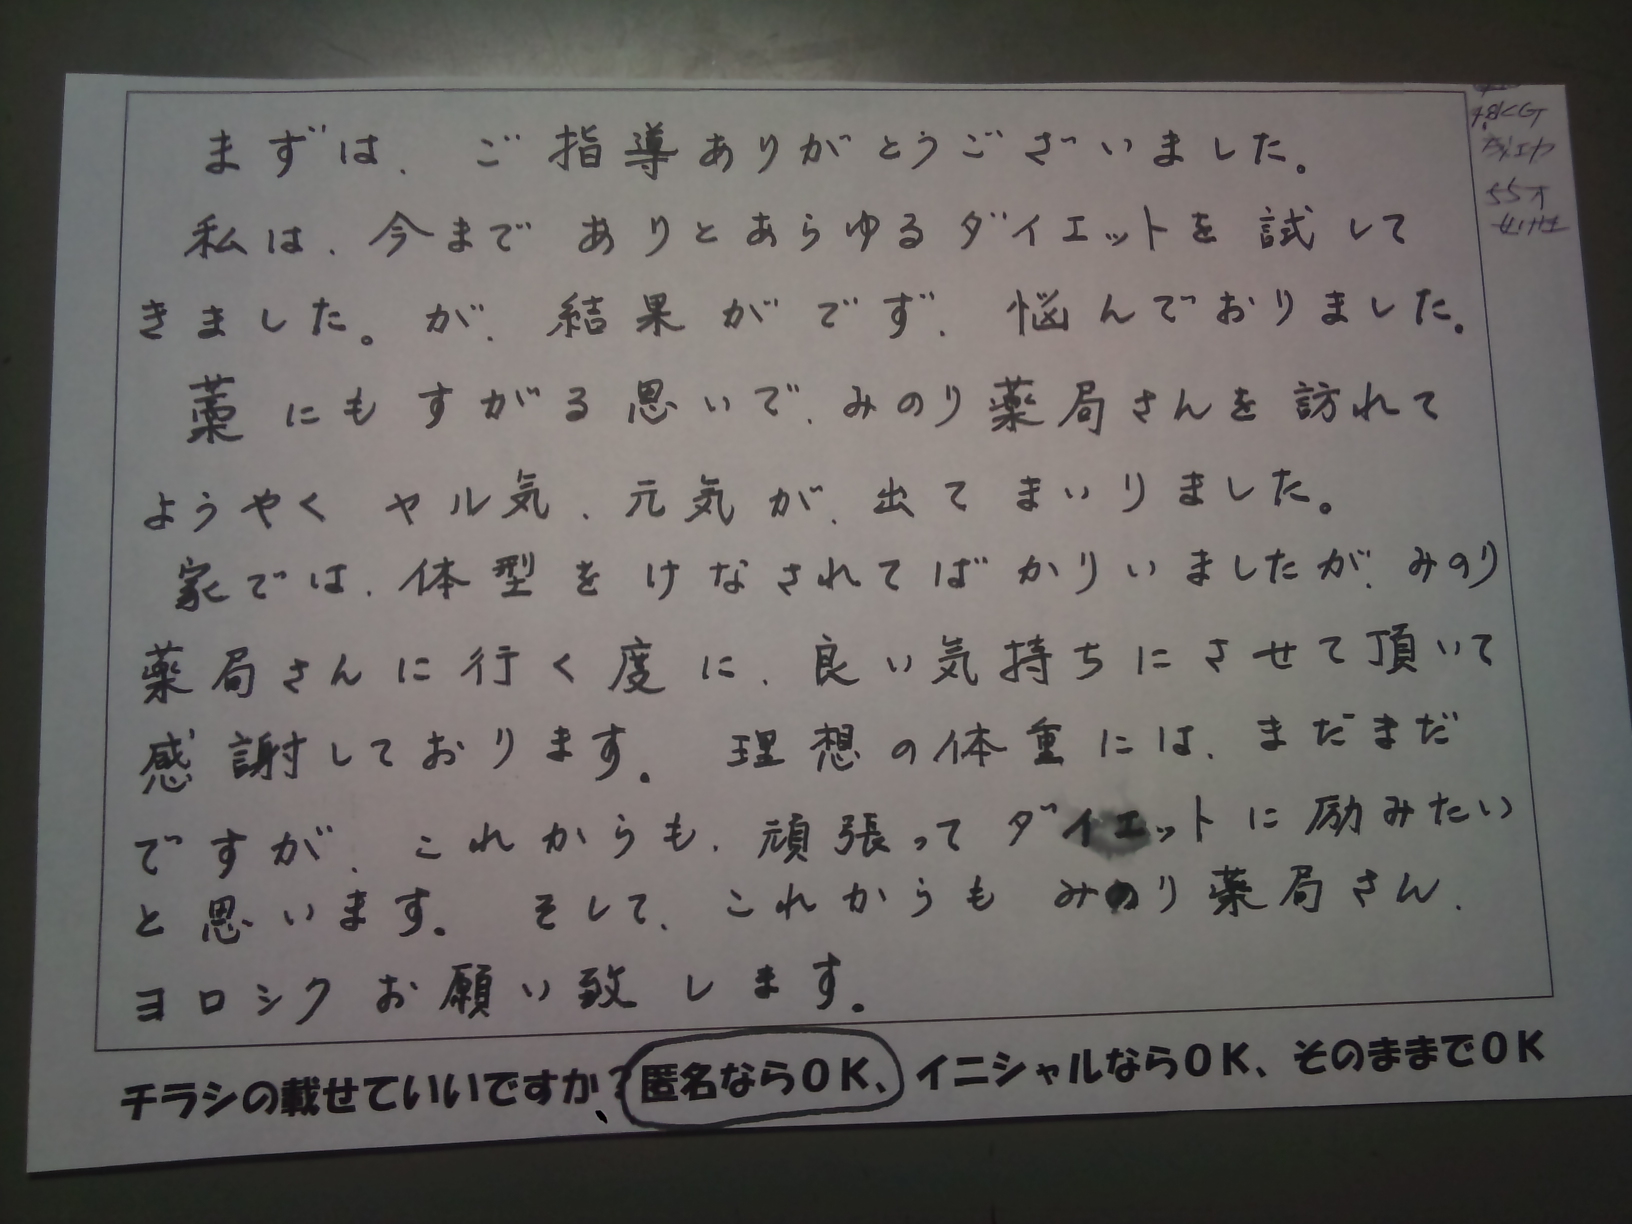 まずは、ご指導ありがとうございました。
私は、今までありとあらゆるダイエットを試して
きました。が、結果がでず、悩んでおりました。
藁にもすがる思いで、みのり薬局さんを訪れて
ようやくヤル気、元気が、出てまいりました。
家では、体型をけなされてばかりいましたが、みのり
薬局さんに行く度に、良い気持ちにさせて頂いて
感謝しております。理想の体重には、まだまだ
ですが、これからも、頑張ってダイエットに励みたい
と思います。そして、これからもみのり薬局さん、
ヨロシクお願い致します。
チラシの載せていいですか?匿名ならOK、イニシャルならOK、そのままでOK
55才
女性